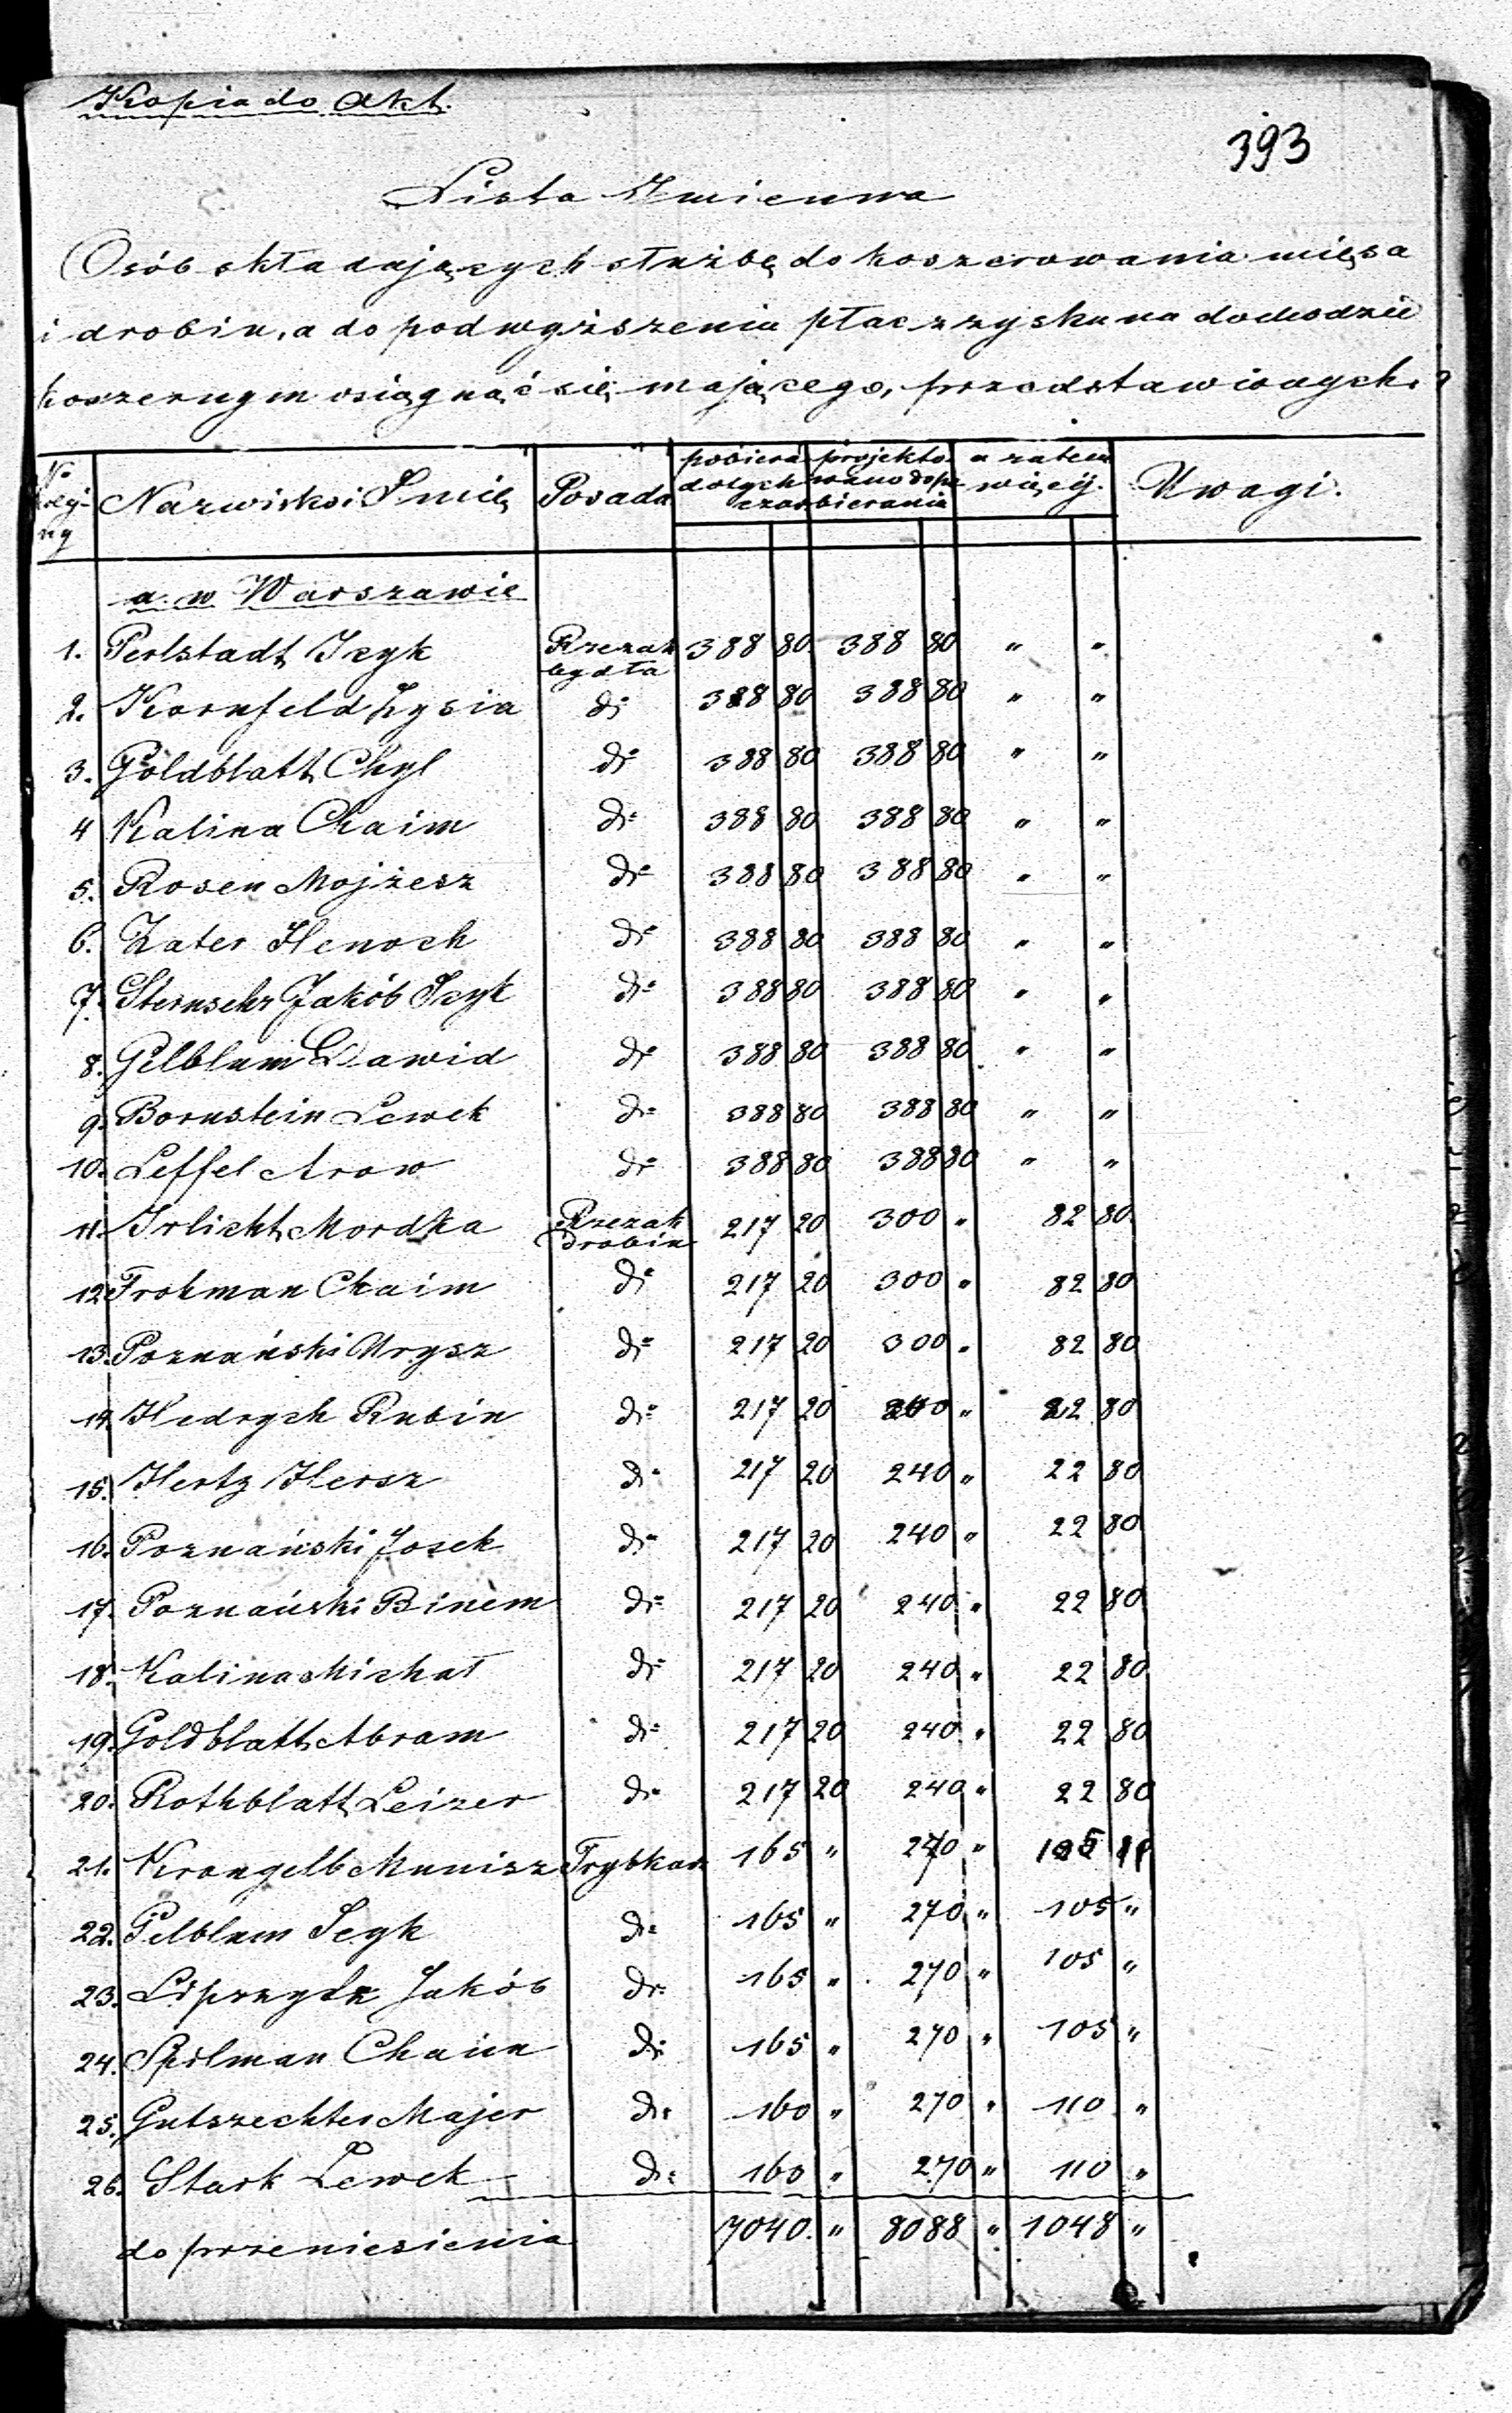 Kopia do Akt.
393
Lista Imienna
Osób składających służbę do koszerowania mięsa
i drobiu, a do podwyższenia płac z zysku na dochodzie
koszernym osiągnąć się mającego, przedstawionych.
No Nazwisko i Imię Posada pobiera dotychczas projektowano do pobierania a zatem więcéj. Uwagi.
a. w Warszawie
1. Perlstadt Icyk Rzezak bydła 388 80 388 80 " "
2. Kornfeld Zysia do 388 80 388 80 " "
3. Goldblatt Chyl do 388 80 388 80 " "
4 Kalina Chaim do 388 80 388 80 " "
5. Rosen Mojżesz do 388 80 388 80 " "
6. Zater Henoch do 388 80 388 80 " "
7. Sternsehr Jakób Icyk do 388 80 388 80 " "
8. Gelblum Dawid do 388 80 388 80 " "
9. Bornstein Lewek do 388 80 388 80 " "
10. Leffel Aron do 388 80 388 80 " "
11. Irlicht Mordka Rzezak drobiu 217 20 300 " 82 80
12. Frohman Chaim do 217 20 300 " 82 80
13. Poznański Urysz do 217 20 300 " 82 80
14. Hedrych Rubin do 217 20 240 " 22 80
15. Hertz Hersz do 217 20 240 " 22 80
16. Poznański Josek do 217 20 240 " 22 80
17. Poznański Binem do 217 20 240 " 22 80
18. Kalina Michał do 217 20 240 " 22 80
19. Goldblatt Abram do 217 20 240 " 22 80
20. Rothblatt Leizer do 217 20 240 " 22 80
21. Krongelb Munisz Trybkarz 165 " 270 " 105 "
22. Gelblum Icyk do 165 " 270 " 105 "
23. Lipszytz Jakób do 165 " 270 " 105 "
24. Spilman Chaim do 165 " 270 " 105 "
25. Gutszechter Majer do 160 " 270 " 110 "
26. Stark Lewek do 160 " 270 " 110 "
do przeniesienia 7040. " 8088 " 1048 "